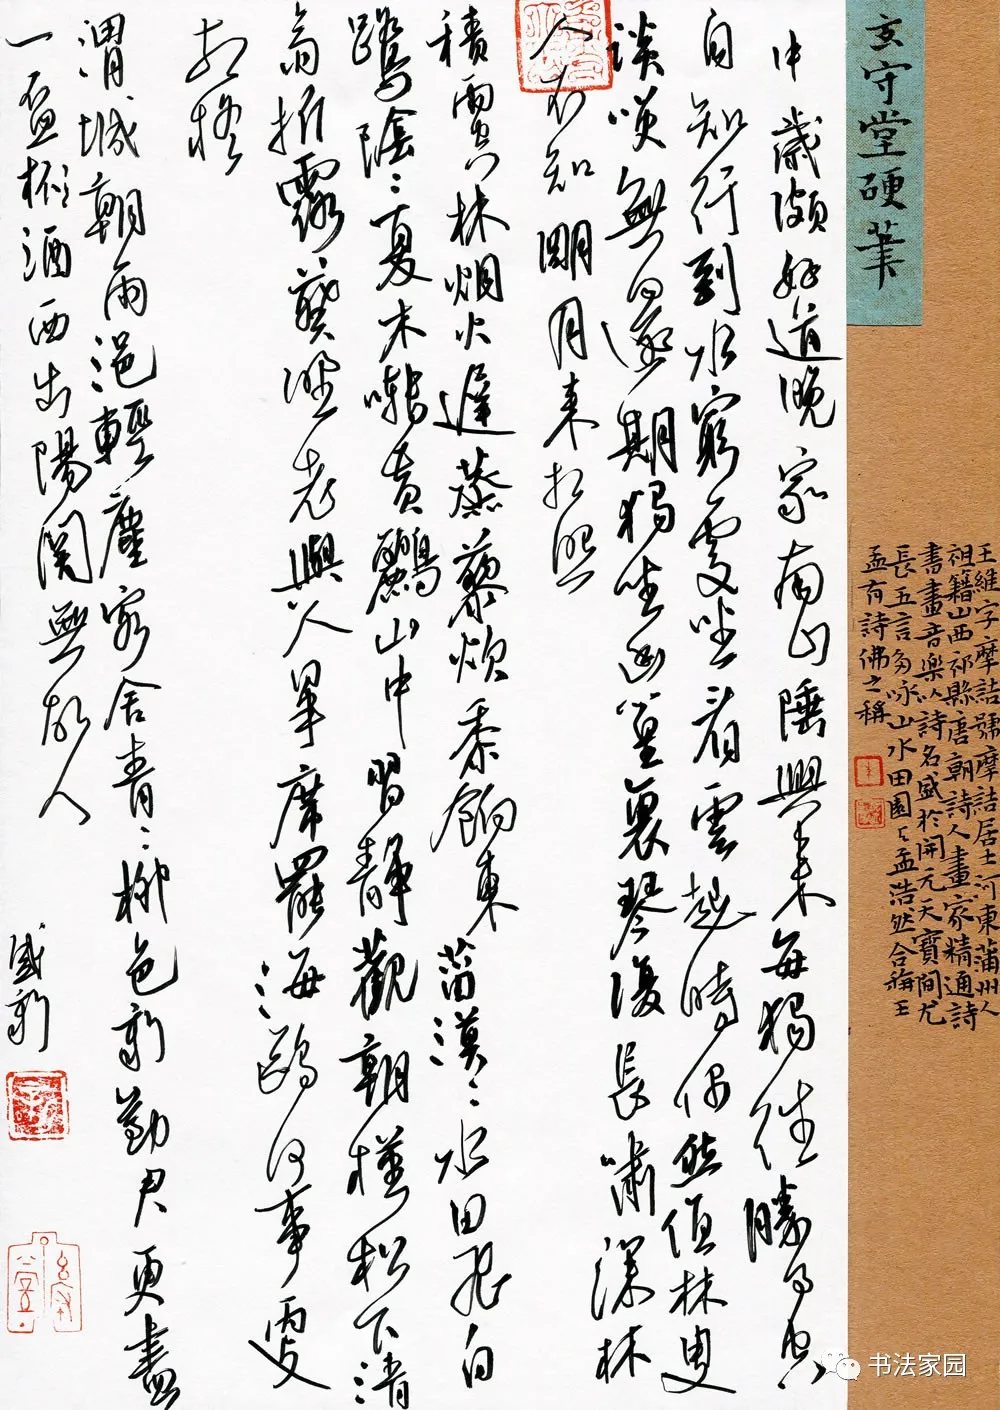 玄守堂硬筆
王維字摩詰號摩詰居士河東蒲州人
祖籍山西祁縣唐朝詩人畫家精通詩
書畫音樂以詩名盛於開元天寶間尤
長五言多咏山水田園与孟浩然合稱王
孟有詩佛之稱
中歲頗好道晚家南山陲興來每獨往勝事空
自知行到水窮處坐看雲起時偶然值林叟
談咲無還期獨坐幽篁裏琴復長嘯深林
人不知明月來相照
積雨空林烟火遲蒸藜炊黍餉東菑漠〻水田飛白
鷺陰〻夏木囀黃鸝山中習靜觀朝槿松下清
齋折露葵野老與人爭席罷海鷗何事更
相疑
渭城朝雨浥輕塵客舍青〻柳色新勸君更盡
一盃酒西出陽關無故人
盛新
书法家园